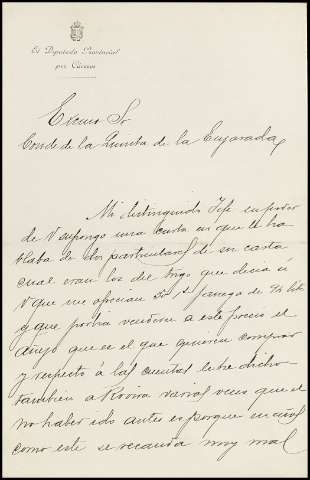 El Diputado Provincial
por Cáceres
Excmo Sr
Conde de la Quinta de la Enjarada
Mi distinguido Jefe en poder
de V supongo una carta en que le ha
blaba de dos particulares de su carta
cual eran los del trigo que decia á
V que me ofrecian 50 fanega de 94 lib
y que podria venderse a este precio el
añejo que es el que quieren comprar
y respecto á las cuentas le he dicho
tambien á Rovira varias veces que el
no haber ido antes es porque en años
como este se recauda muy mal